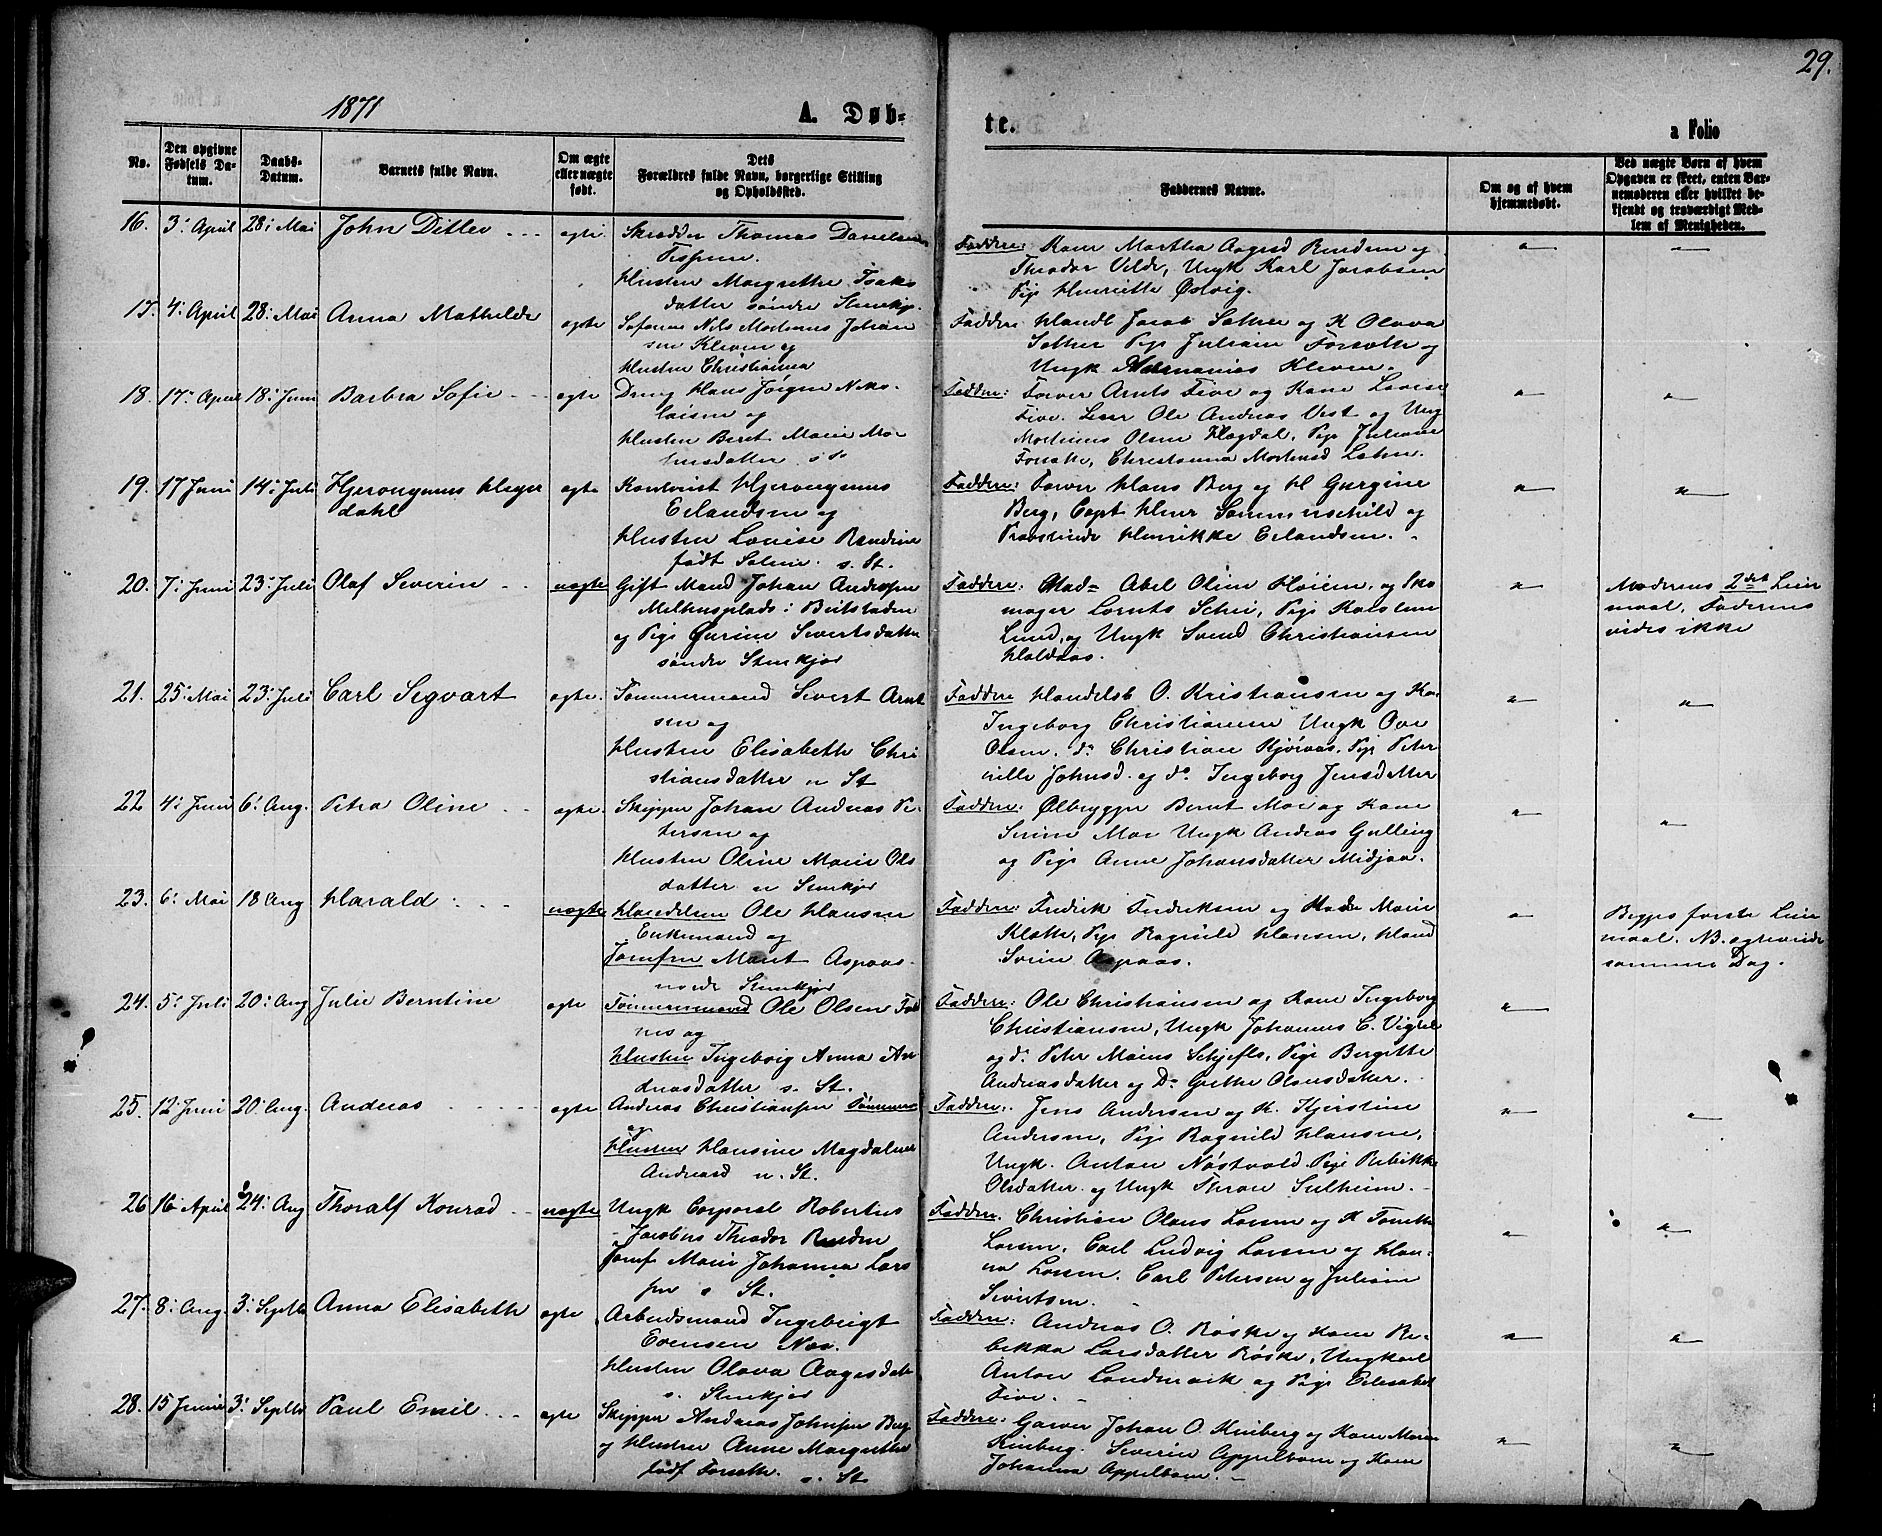 29.
1871
A. Døb-
te.
a Folio
No.
Den opgivne Fødsels Da-tum.
Daabs-Datum.
Barnets fulde Navn.
Om ægte eller uægte født.
Dets
Forældres fulde Navn, borgerlige Stilling og Opholdssted.
Faddernes Navne.
Om og af hvem hjemmedøbt.
Ved uægte Børn af hvem Opgaven er skeet, enten Bar-nemoderen eller hvilket be-kjendt og troværdigt Med-lem af Menigheden.
16. 3: April 28: Mai John Ditlev ægte Skrædder Thomas Danielsen
Hustru Margrethe Isaks
datter søndre Stenkjr.
Faddere: Kone Martha Aagesd Rendem og
Theodor Velde, Ungk Karl Jacobsen
Pige Henriette Østvig.
17. 4: April 28: Mai Anna Mathilde ægte Nils Johan
sen Kleven og
Hustru Christianna
Faddere Handl Jacob Sather og K Olava
Sather Pige Juliane Forseth og
Ungk Kleven.
18. 17: April 18: Juni Barbra Sofie ægte Dreng Hans Jørgen Niko-
laisen og
Hustru Beret Marie Mor
tensdatter s. St
Faddere: Farver Arnts Five og Kone Lovise
Five. Ole Andreas Vest og Ung
Mortinus Olsen Hegdal, Pige Juliane
Forseth, Christianna Mortensd Lehn.
19. 17 Juni 14: Juli Hjeronymus Heyer
dahl ægte Kontorist Hjeronymus
Erlandsen og
Hustru Louise Rendine
født Salvie s. St.
Faddere: Farver Hans Berg og H Gurgine
Berg, Capt Herr Sommerschild og
Provstinde Henrikke Erlandsen.
20. 7: Juni 23: Juli Olaf Severin uægte Gift Mand Johan Andersen
Melhusplads i Beitstaden
og Pige Gurine Sivertsdatter
søndre Stenkjør
Faddere: Mad= Abel Oline Hoiem og Sko
mager Lornts Schei, Pige Karoline
Lund, og Ungk Svend Christiansen
Haldaas.
Moderens 2det Leier
maal, Faderens
vides ikke
21. 25: Mai 23: Juli Carl Segvart ægte Tømmermand Sivert Arnt
sen og
Hustru Elisabeth Chri
stiansdatter n St
Faddere Handelsb O. Kristiansen og Ko.
Ingeborg Christiansen Ungk Ove
Olsen, do Christian Kjøraas, Pige Peter
nille Johnsd. og do Ingeborg Jensdatter
22 4: Juni 6: Aug. Petra Oline ægte Skipper Johan Andreas Pe-
tersen og
Hustru Oline Marie Ols
datter n Stenkjør
Faddere: Ølbrygger Bernt Moe og Kone
Serine Moe Ungk Andreas Gulling
og Pige Anne Johansdatter Midjaa.
23. 6: Mai 18 Aug Harald uægte Handelsm Ole Hansen
Enkemand og
Jomfru Marit Aspaas
nordr Stenkjør
Faddere: Fredrik Fredriksen og Made Marie
Klætte, Pige Ragnild Hansen, Hand
Svein Aspaas.
Begges første Leier
maal. NB. ægteviede
samme Dag.
24. 5: Juli 20: Aug Julie Berntine ægte Tømmermand Ole Olsen
nes og
Hustru Ingeborg Anna An
dreasdatter s. St.
Faddere: Ole Christiansen og Kone Ingeborg
Christiansen, Ungk Johannes C. Vigdel
og do Peter Maius Schjefls, Pige Bergitte
Andreasdatter og Do Grethe Olausdatter.
25. 12 Juni 20: Aug. Andreas ægte Andreas Christiansen Tømmerm
og
Hustru Hansine Magdalene
Andreasd n. St.
Faddere: Jens Andersen og K. Kjerstine
Andersen, Pige Ragnild Hansen,
Ungk. Anton Nøstvold Pige Rebikke
Olsdatter og Ungk Theron Sulheim.
26 16 April 24: Aug Thoralf Konrad uægte Ungk Corporal Robertus
Jacobus Theodor Renden
Jomf Marie Johanna Lars
sen s St.
Faddere. Christian Olaus Larsen og K Tonette
Larsen, Carl Ludvig Larsen og Han-
na Larsen. Carl Petersen og Juliane
Sivertsen.
27. 8: Aug. 3: Septb Anna Elisabeth ægte Arbeidsmand Ingebrigt
Evensen Næs.
Hustru Olava Aagesdatt
s. Stenkjør
Faddere: Andreas O. Røske og Kone Re-
bekka Larsdatter Røske, Ungkarl
Anton Landmark og Pige Elisabet
Five.
28. 15 Juni 3: Septb Paul Emil ægte Skipper Andreas Johnsen Berg
og Hustru Anne Margrethe
født Forseth. s. St
Faddere: Garver Johan O. Kinberg og Kone Maren
Kinberg. Severin Appelbom og Kone
Johanna Appelbom.